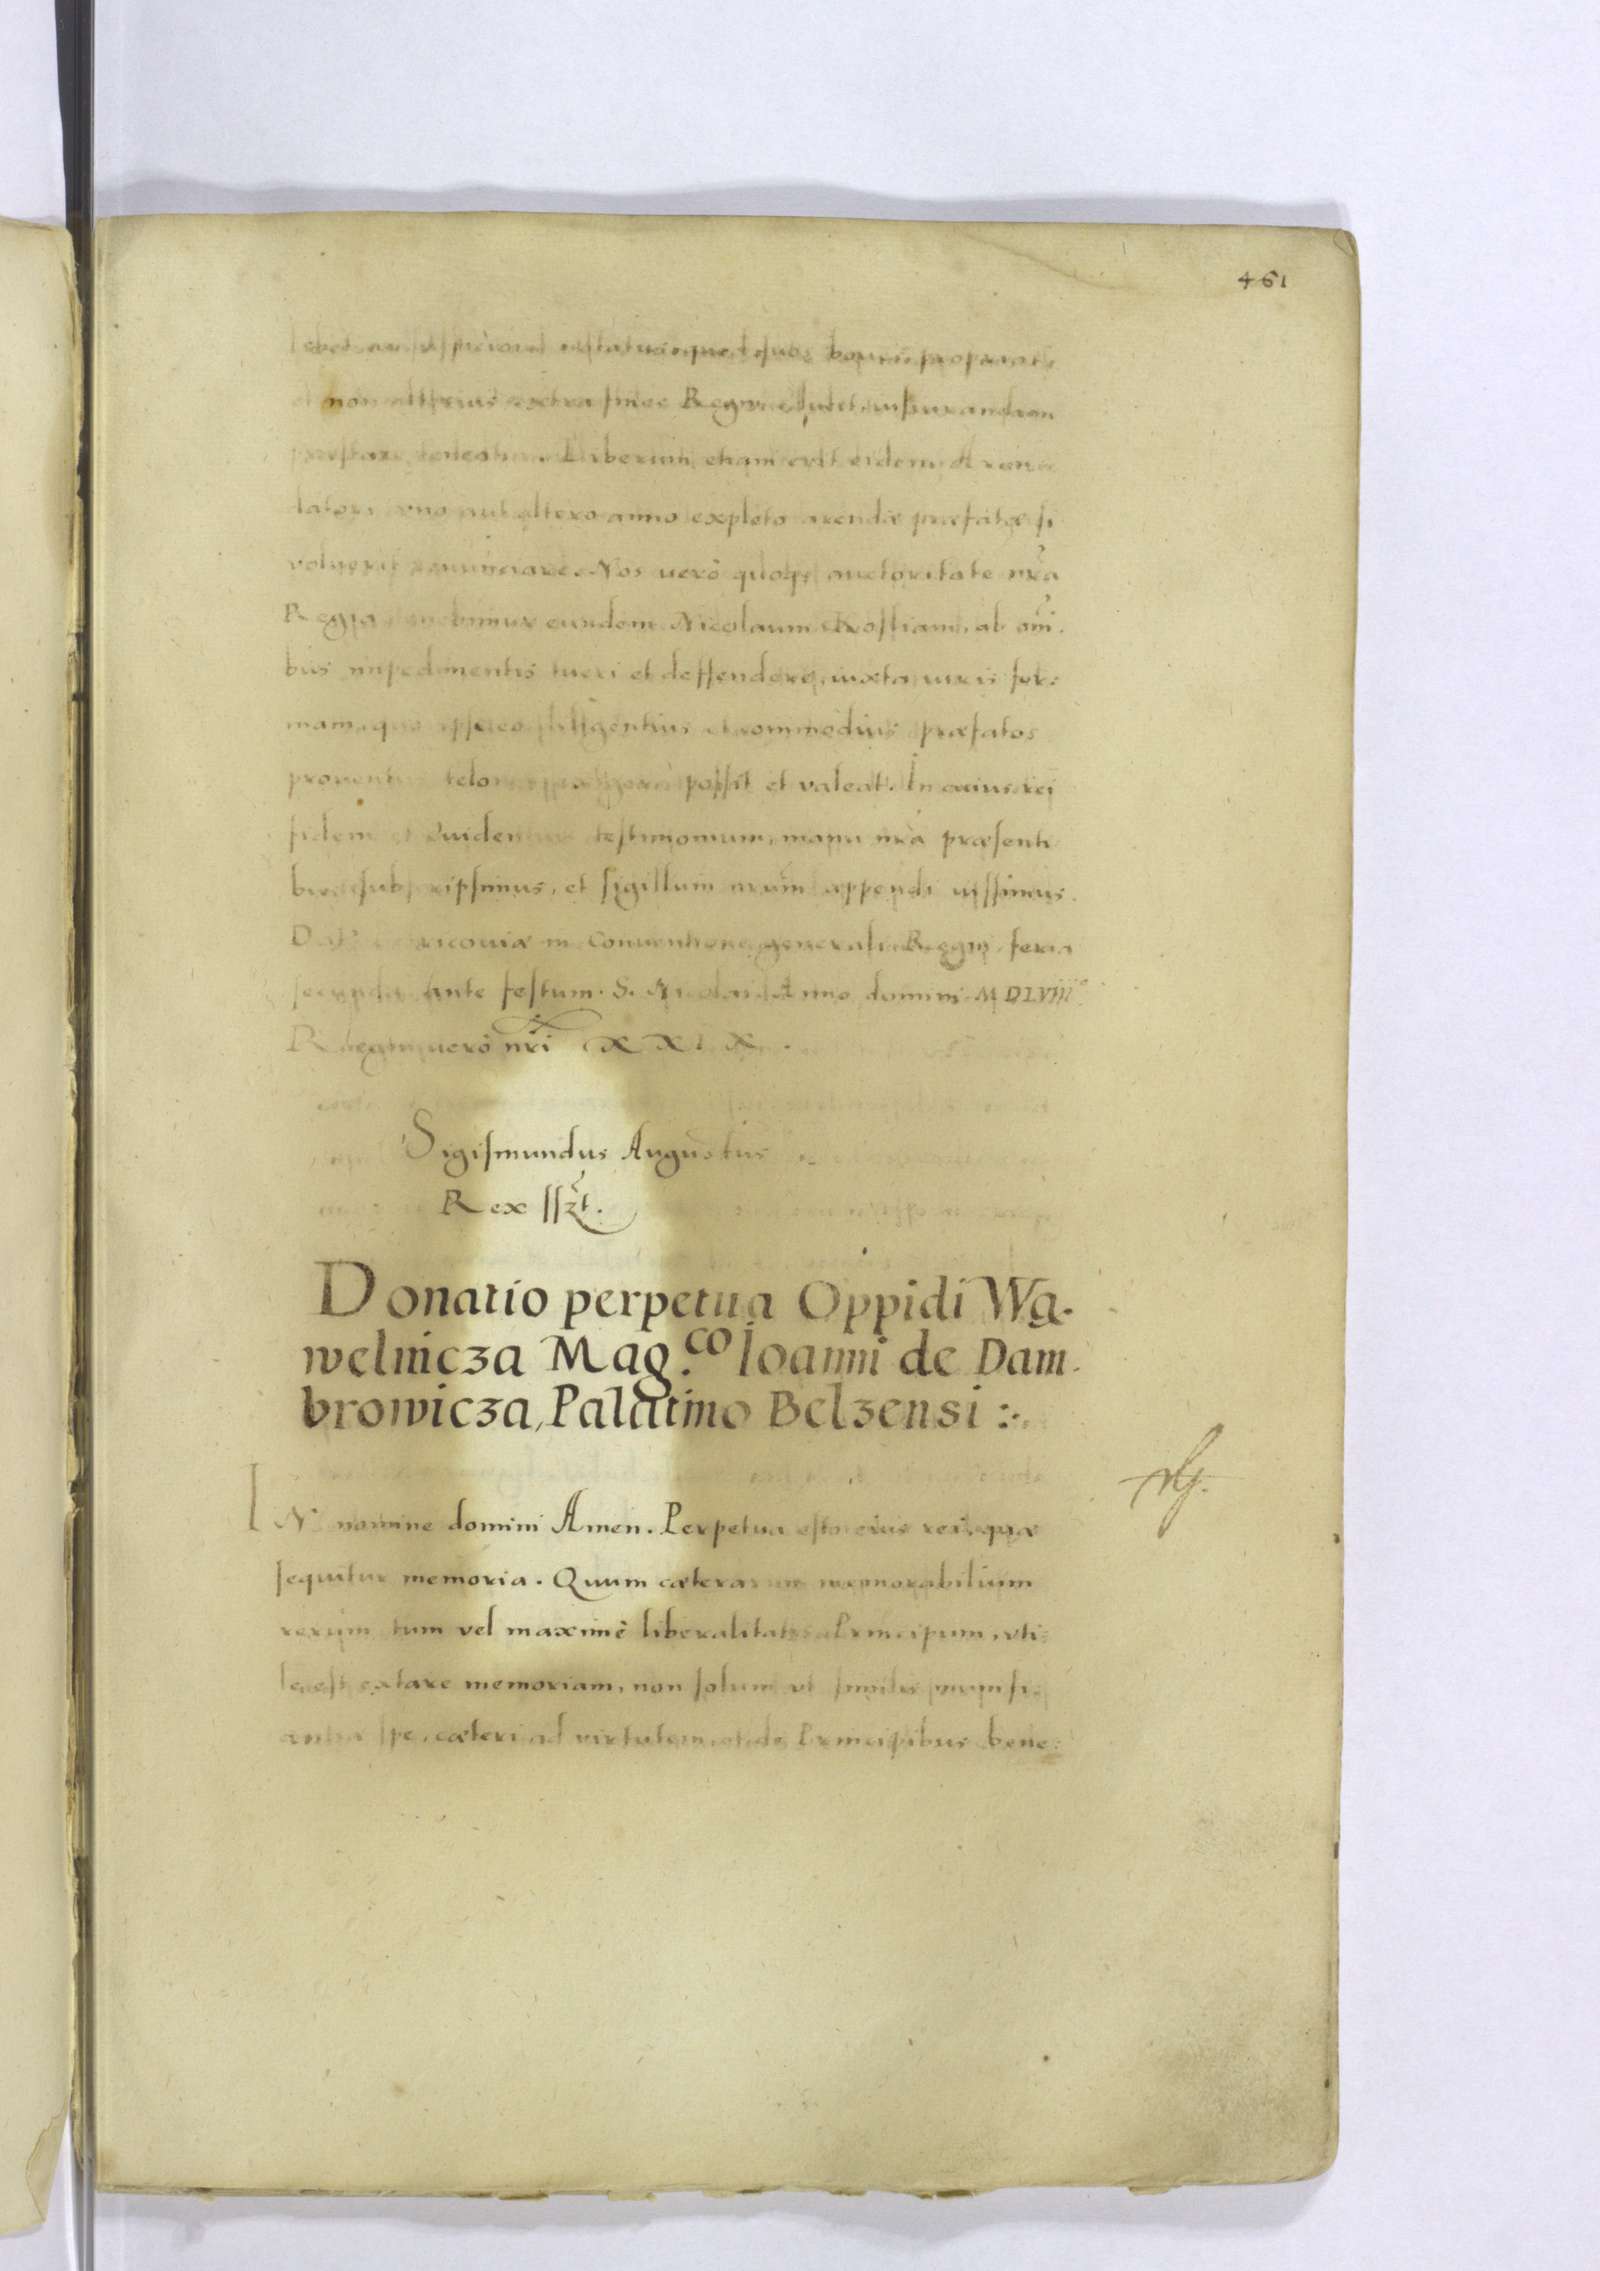 461
et non alterius extra fines Regni
præstare teneatur. Liberum etiam erit eidem Aren
datori uno aut altero anno expleto arendæ præfatæ si
voluerit renunciare. Nos uerò quoqȝ auctoritate nr̃a
Regia eundem Nicolaum ab om̃i
bus impedimentis tueri et deffendere, iuxta iuris for:
mam, quo ipse eo diligentius et commodius præfatos
prouentus possit et valeat. In cuius rei
fidem et euidens testimonium, manu nr̃a præsenti
bus subscripsimus, et sigillum nr̃um appendi iussimus.
in Conuentione generali Regni feria
secunda ante festum S. Nicolai Anno domini MDLVIII
Regni uerò nr̃i XXIX.
Sigismundus Augustus
Rex ssz̃t.
Donatio perpetua Oppidi Wa.
welnicza Mag.co Ioanni de Dam.
browicza, Palatino Belzensi :.
IN nomine domini Amen. Perpetua esto eius rei quæ
sequitur memoria. Quum cæterarum memorabilium
rerum tum vel maximè liberalitatis Principum, vti:
le est extare memoriam, non solum vt
spe, cæteri ad virtutem et de Principibus bene: